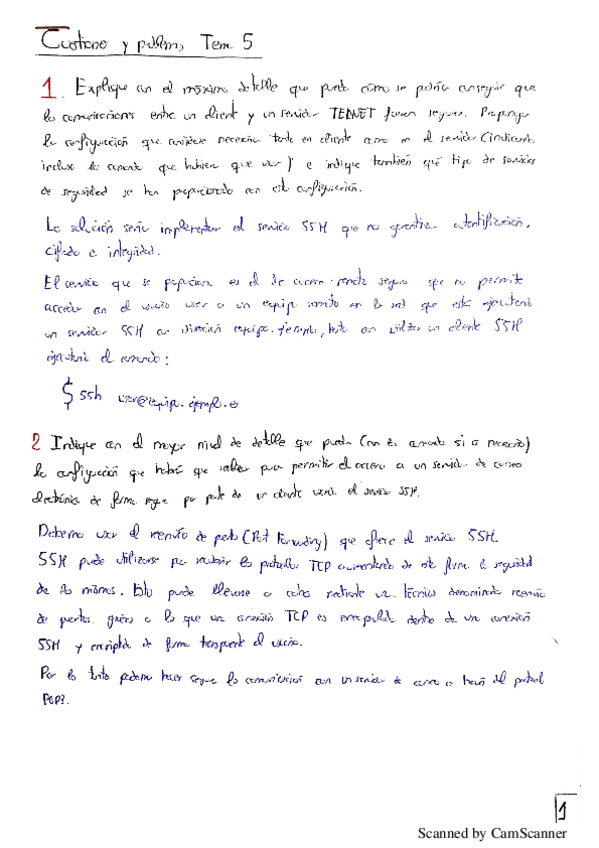 Cuestiones y problemas Tema 5
1. Explique con el máximo detalle que pueda cómo se podría conseguir que
las comunicaciones entre un cliente y un servidor TELNET fuesen seguras. Proponga
la configuración que considere necesaria tanto en cliente como en el servidor (indicando,
incluso los comandos que habría que usar) e indique también qué tipo de servicios
de seguridad se han proporcionado con esta configuración.
La solución sería implementar el servicio SSH que nos garantiza autentificación,
cifrado e integridad.
El servicio que se proporciona es el de acceso remoto seguro que nos permite
acceder con el usuario user a un equipo remoto en la red que esté ejecutando
un servidor SSH con dirección equipo.ejemplo, basta con utilizar un cliente SSH
ejecutando el comando:
$ ssh user@equipo.ejemplo.es
2 Indique con el mayor nivel de detalle que pueda (con comandos si es necesario)
la configuración que habrá que realizar para permitir el acceso a un servidor de correo
electrónico de forma segura por parte de un cliente usando el servicio SSH.
Debemos usar el reenvío de puertos (Port Forwarding) que ofrece el servicio SSH.
SSH puede utilizarse para los protocolos TCP aumentando de esta forma la seguridad
de los mismos. Esto puede llevarse a cabo mediante una técnica denominada reenvío
de puertos, gracias a la que una conexión TCP es encapsulada dentro de una conexión
SSH y encriptada de forma transparente al usuario.
Por lo tanto podemos hacer segura la comunicación con un servidor de correo a través del protocolo
POP3.
1
Scanned by CamScanner